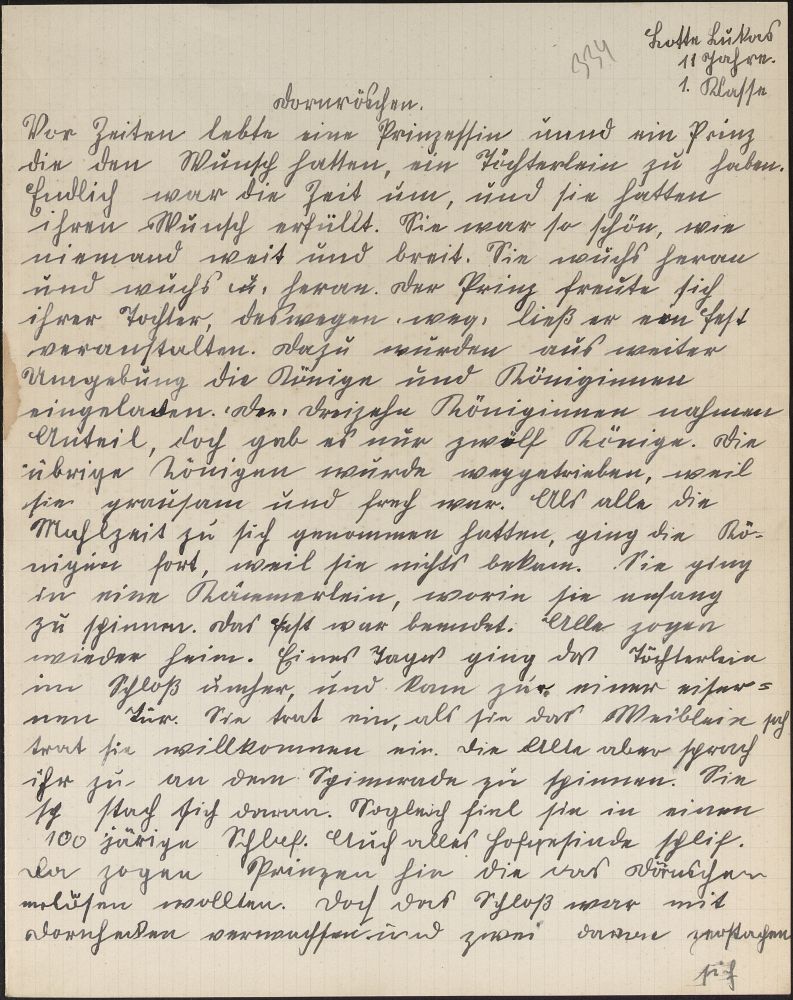 334
Lotte Lukas
11 Jahre.
1. Klasse
Dornröschen.
Vor Zeiten lebte eine Prinzessin uund ein Prinz
die den Wunsch hatten, ein Töchterlein zu haben.
Endlich war die Zeit um, und sie hatten
ihren Wunsch erfüllt. Sie war so schön, wie
niemand weit und breit. Sie wuchs heran
und wuchs u. heran. Der Prinz freute sich
ihrer Tochter, deswegen weg. ließ er ein Fest
veranstalten. Dazu wurden aus weiter
Umgebung die Könige und Königinnen
eingeladen. Der. Dreizehn Königinnen nahmen
Anteil, doch gab es nur zwölf Könige. Die
übrige Königen wurde weggetrieben, weil
sie grausam und frech war. Als alle die
Mahlzeit zu sich genommen hatten, ging die Kö-
nigin fort, weil sie nichts bekam. Sie ging
in eine Kämmerlein, worin sie anfang
zu spinnen. Das Fest war beendet. Alle zogen
wieder heim. Eines Tages ging das Töchterlein
im Schloß umher, und kam zur einer eiser=
nen Tür. Sie trat ein, als sie das Weiblein sah
trat sie willkommen ein. Die Alte aber sprach
ihr zu an dem Spinnrade zu spinnen. Sie
sp stach sich daran. Sogleich fiel sie in einen
100 järige Schlaf. Auch alles Hofgesinde schlif.
Da zogen Prinzen hin die das Dörnschen
erlösen wollten. Doch das Schloß war mit
Dornhecken verwachsen und zwei davon zerstachen
sich